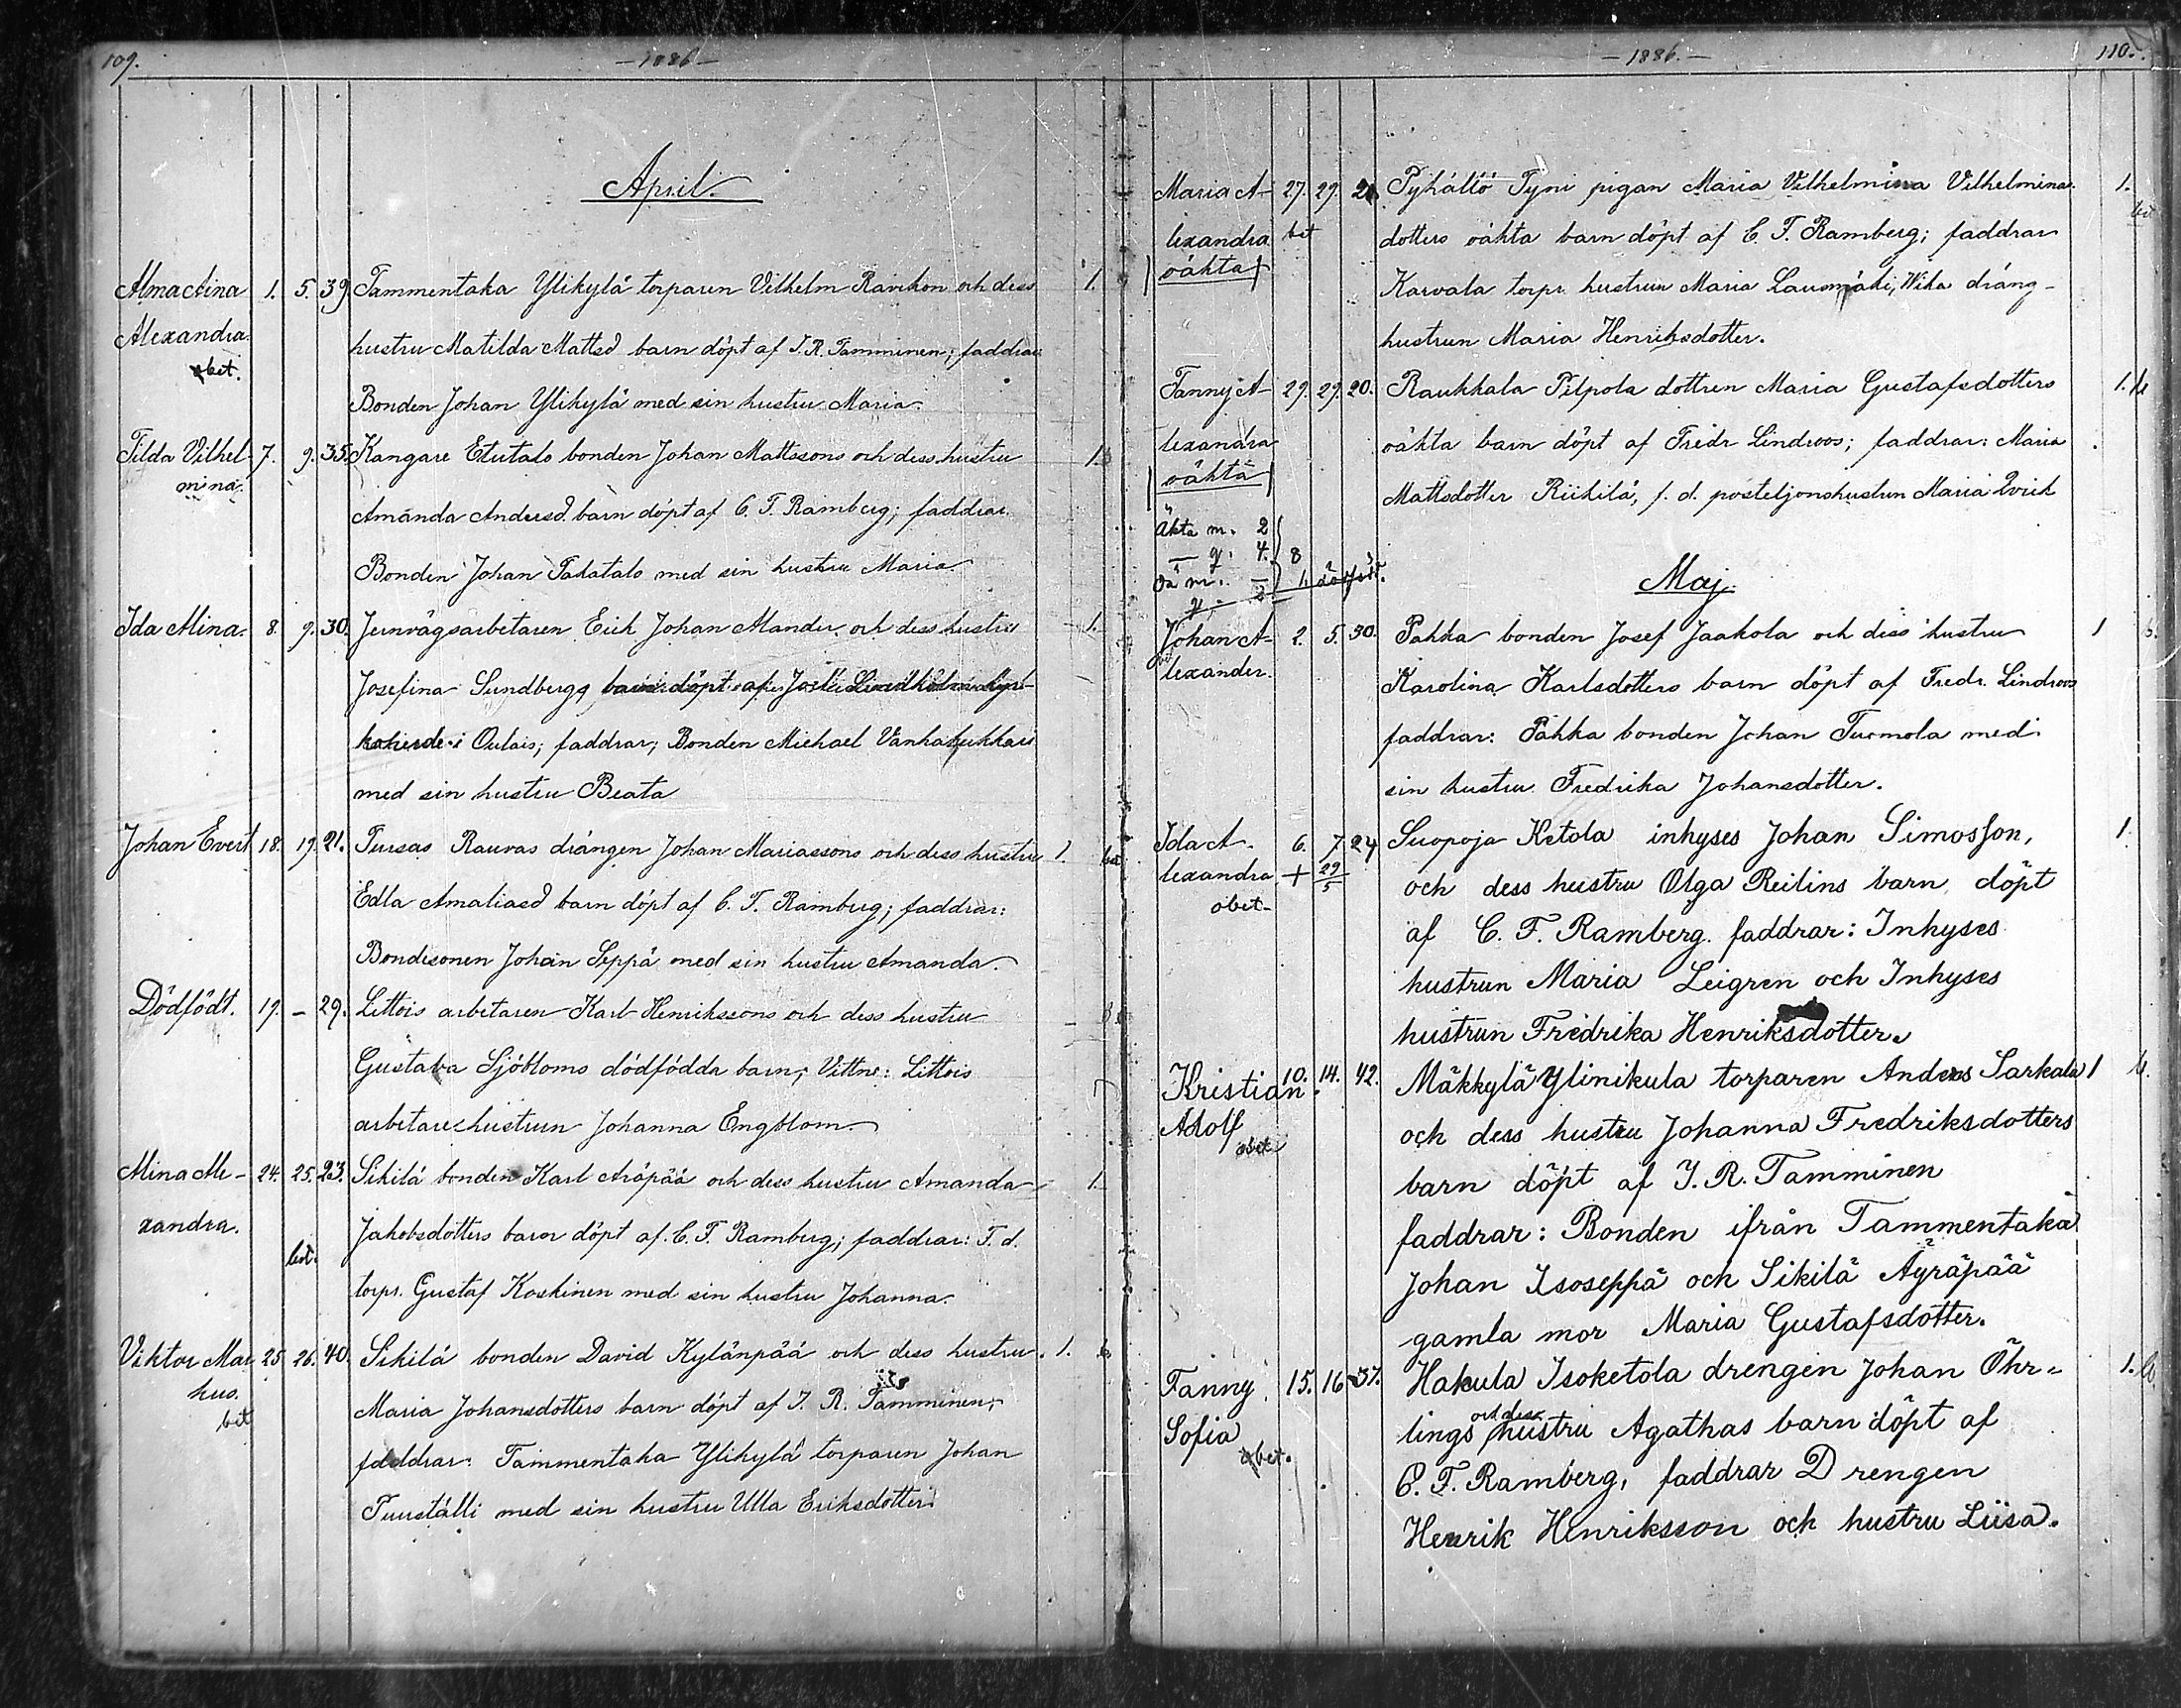 109.
– 1886 –
April.
Alma Aina 1. 5. 39. Tammentaka Ylikylä torparen Vilhelm Ravikon och dess 1.
Alexandra hustru Matilda Mattsd barn döpt af J. R. Tamminen; faddrar
obet. Bonden Johan Ylikylä med sin hustru Maria.
Tilda Vilhel- 7. 9. 35. Kangare Etutalo bonden Johan Mattssons och dess hustru 1.
mina. Amanda Andersd. barn döpt af C. F. Ramberg; faddrar.
Bonden Johan Takatalo med sin hustru Maria
Ida Mina. 8. 9. 30. Jernvägsarbetaren Erik Johan Mander och dess hustru 1.
Josefina Sundbergs barn döpt af
i Oulais; faddrar; Bonden Michael Vanhakukkari
med sin hustru Beata
Johan Evert 18. 19. 21. Tursas Rauvas drängen Johan Mariassons och dess hustru 1. bet
Edla Amaliasd barn döpt af C. F. Ramberg; faddrar:
Bondesonen Johan Seppä med sin hustru Amanda.
Dödfödt. 19. – 29. Littois arbetaren Karl Henrikssons och dess hustru –
Gustava Sjöbloms dödfödda barn; Vittne: Littois
arbetarehustrun Johanna Engblom.
Mina Ale- 24. 25. 23. Sikilä bonden Karl Äräpää och dess hustru Amanda 1.
xandra. Jakobsdotters barn döpt af C. F. Ramberg; faddrar: F. d.
bet. torpr. Gustaf Koskinen med sin hustru Johanna.
Viktor Mar 25 26. 40. Sikilä bonden David Kylänpää och dess hustru 1. b
kus. Maria Johansdotters barn döpt af J. R. Tamminen;
bet faddrar: Tammentaka Ylikylä torparen Johan
Tuuställi med sin hustru Ulla Eriksdotter.
– 1886. –
110.
Maria A- 27. 29. 21. Pyhältö Tyni pigan Maria Vilhelmina Vilhelmina 1.
lexandra bet dotters oäkta barn döpt af C. F. Ramberg; faddrar bet
oäkta Karvala torpr. hustrun Maria Lausmäki, Wika dräng-
hustrun Maria Henriksdotter.
Fanny A- 29. 29. 20. Raukkala Pilpola dottren Maria Gustafsdotters 1. b
lexandra oäkta barn döpt af Fredr Lindroos; faddrar: Maria
oäkta Mattsdotter Riikilä, f. d. posteljonshustrun Maria Qvick
Äkta m. 2
— q. 4. 8
Oä m. – 1. dödfödt.
q. – 2
Maj
Johan A- 2. 5. 30. Pahka bonden Josef Jaakola och dess hustru 1 b.
lexander. Karolina Karlsdotters barn döpt af Fredr. Lindroos
faddrar: Pahka bonden Johan Tuomola med
sin hustru Fredrika Johansdotter.
Ida A- 6. 7 24 Suopoja Ketola inhyses Johan Simosson, 1.
lexandra + 29/5 och dess hustru Olga Reilins barn döpt
obet- af C. F. Ramberg. faddrar: Inhyses
hustrun Maria Leigren och Inhyses
hustrun Fredrika Henriksdotter.
Kristian 10. 14. 42. Mäkkylä Ylinikula torparen Anders Sarkala 1 b.
Adolf och dess hustru Johanna Fredriksdotters
obet barn döpt af J. R. Tamminen
faddrar: Bonden ifrån Tammentaka
Johan Isoseppä och Sikilä Äyräpää
gamla mor Maria Gustafsdotter.
Fanny 15. 16 37. Hakula Isoketola drengen Johan Öhr= 1. b.
Sofia lings och dess hustru Agathas barn döpt af
obet. C. F. Ramberg, faddrar Drengen
Henrik Henriksson och hustru Liisa.